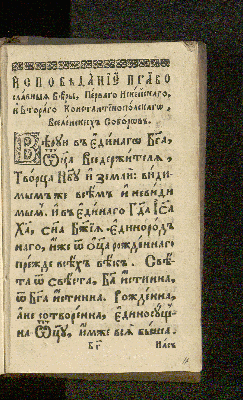 И҆СПОВѢ́ДАНІЕ ПРАВО
сла́вныѧ Вѣ́ры, Пе́рвагѡ Нїке́йскагѡ,
и҆ Втора́гѡ Кѡнстантїнопо́лскагѡ,
Вселе́нскихъ Собо́рѡвъ.
Вѣ́рꙋю въ Е҆ди́нагѡ Бг҃а,
Ѻ҆ц҃а̀ Вседержи́телѧ,
Тво́рца Нб҃ꙋ и҆ земли̑: ви́ди
мымъже всѣ̑мъ и҆ неви́ди
мымъ. И҆ въ Е҆ди́нагѡ Гд҃а І҆и҃са
Ха҃, Сн҃а Бж҃їѧ. Е҆диноро́дъ
нагѡ, и҆́же ѿ Ѻ҆ц҃а̀ рожде́ннагѡ
пре́жде всѣ́хъ вѣ́къ. Свѣ́
та ѿ свѣ́та, Бг҃а и҆́стинна,
ѿ Бг҃а и҆́стинна. Рожде́нна,
а не сотворе́нна, Е҆диносꙋ́щ
на Ѻ҆ц҃ꙋ̀, и҆́мже всѧ̑ бы́ша.
Нас